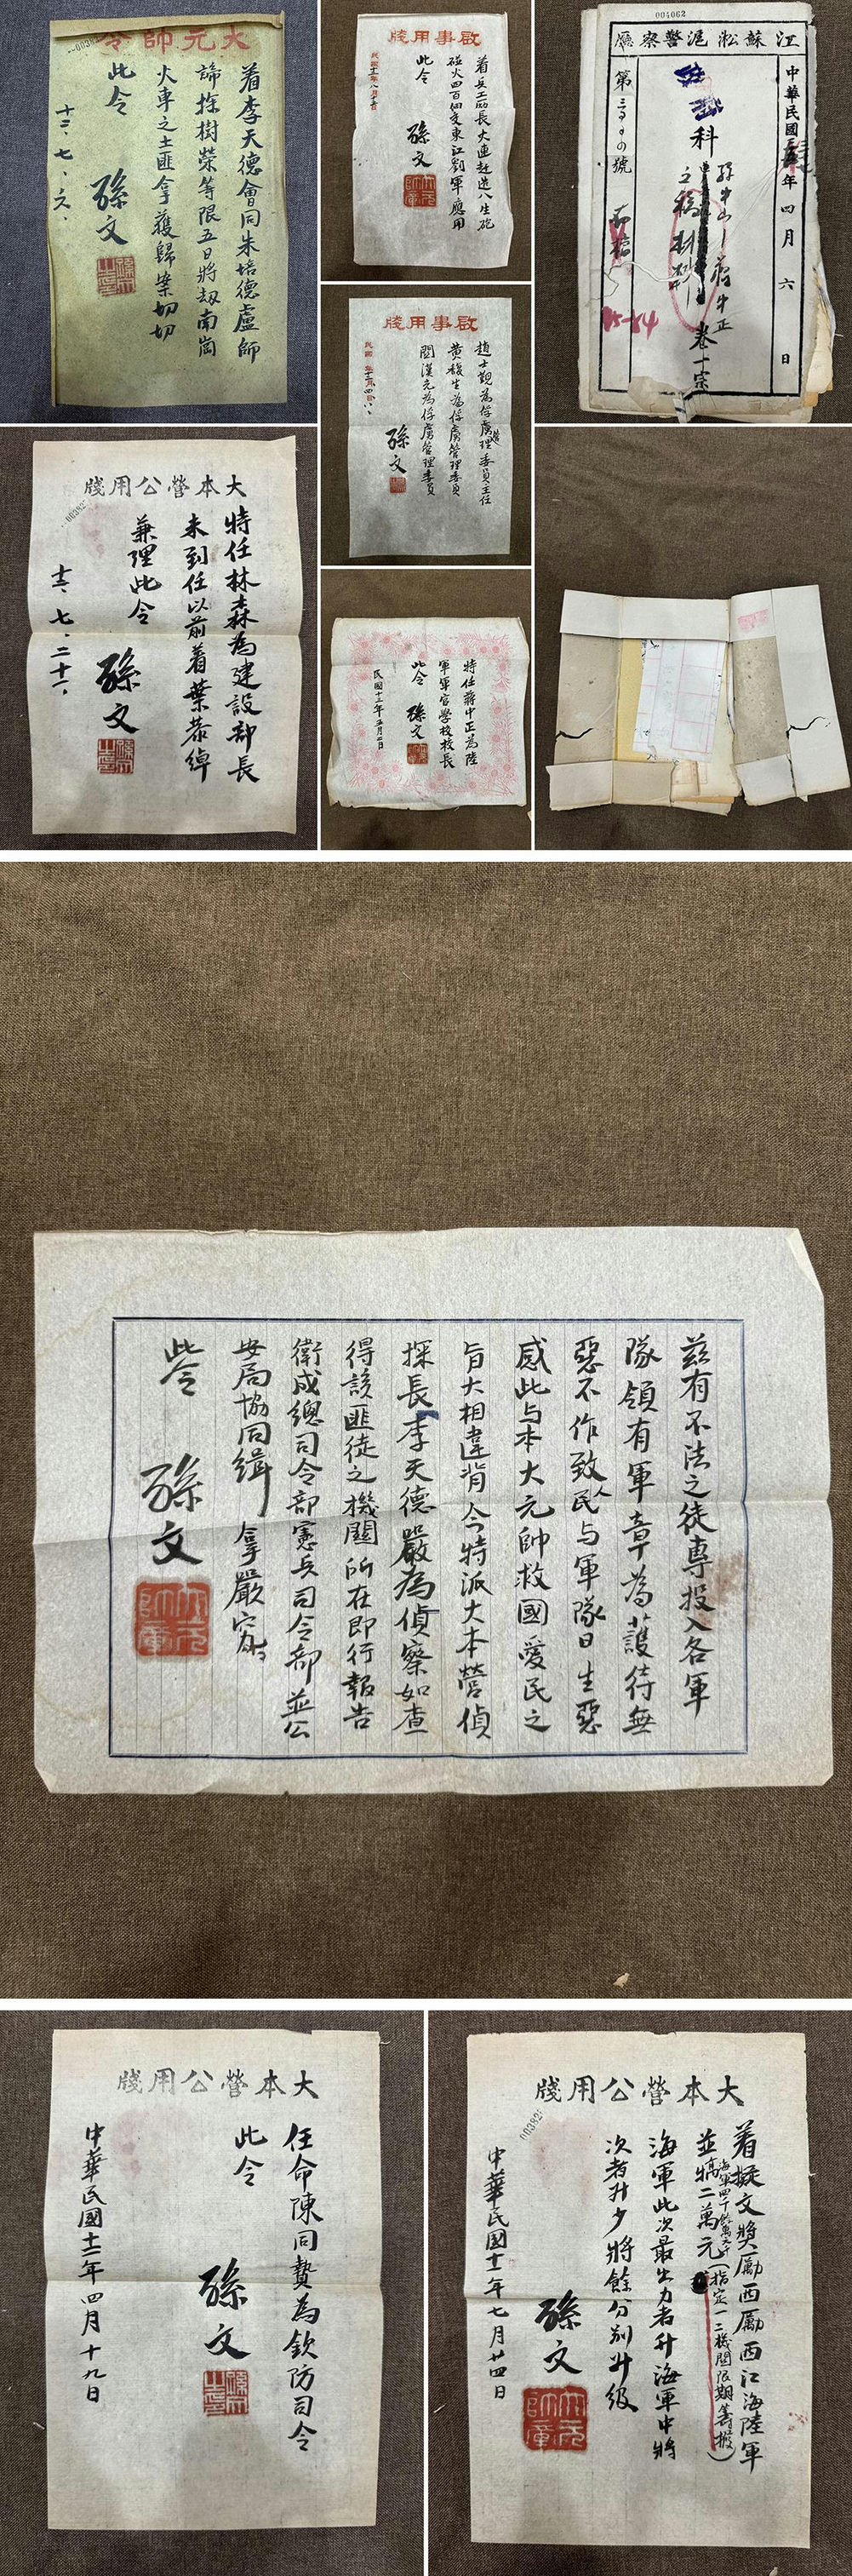 大元帥令
着李天德會同朱培德盧師
諦探樹榮等限五日將刼南崗
火車之土匪拿獲歸案切切
此令
孫文
十三、七、六、
啟事用牋
着兵工厰長大連赶造八生砲
碰火四百個交東江劉軍應用
此令
孫文
江蘇淞滬警察廳
001062
中華民國年四月六日
科
孫中山
蔣中正
卷十宗
第號
大本營公用牋
特任林森為建設部長
未到任以前着葉恭綽
兼理此令
孫文
十三、七、二十一、
啟事用牋
趙士覲為俘虜管理委員主任
黃馥生為俘虜管理委員
關漢光為俘虜管理委員
孫文
特任蔣中正為陸
軍軍官學校校長
此令
孫文
民國十三年五月二日
茲有不法之徒專投入各軍
隊領有軍章為護符無
惡不作致人民与軍隊日生惡
感此与本大元帥救國愛民之
旨大相違背今特派大本營偵
探長李天德嚴為偵察如查
得該匪徒之機關所在即行報告
衛戍總司令部憲兵司令部並公
安局協同緝拿嚴究
此令
孫文
大本營公用牋
任命陳同贄為欽防司令
此令
孫文
中華民國十二年四月十九日
大本營公用牋
着擬文獎勵西勵西江海陸軍
並犒二萬元(指定一二機關限期籌撥)
海軍此次最出力者升海軍中將
次者升少將餘分別升級
孫文
中華民國十二年七月廿四日